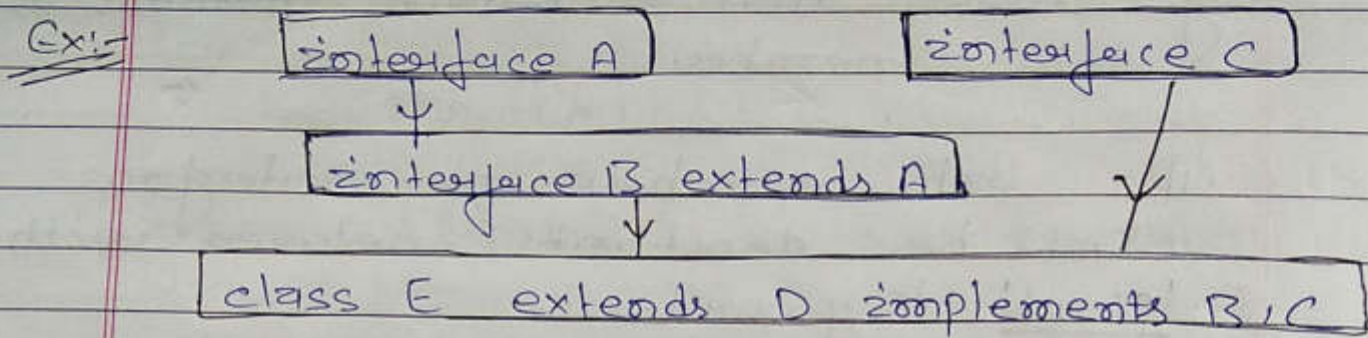 Ex:-
interface A
interface C
interface B extends A
class E extends D implements B, C